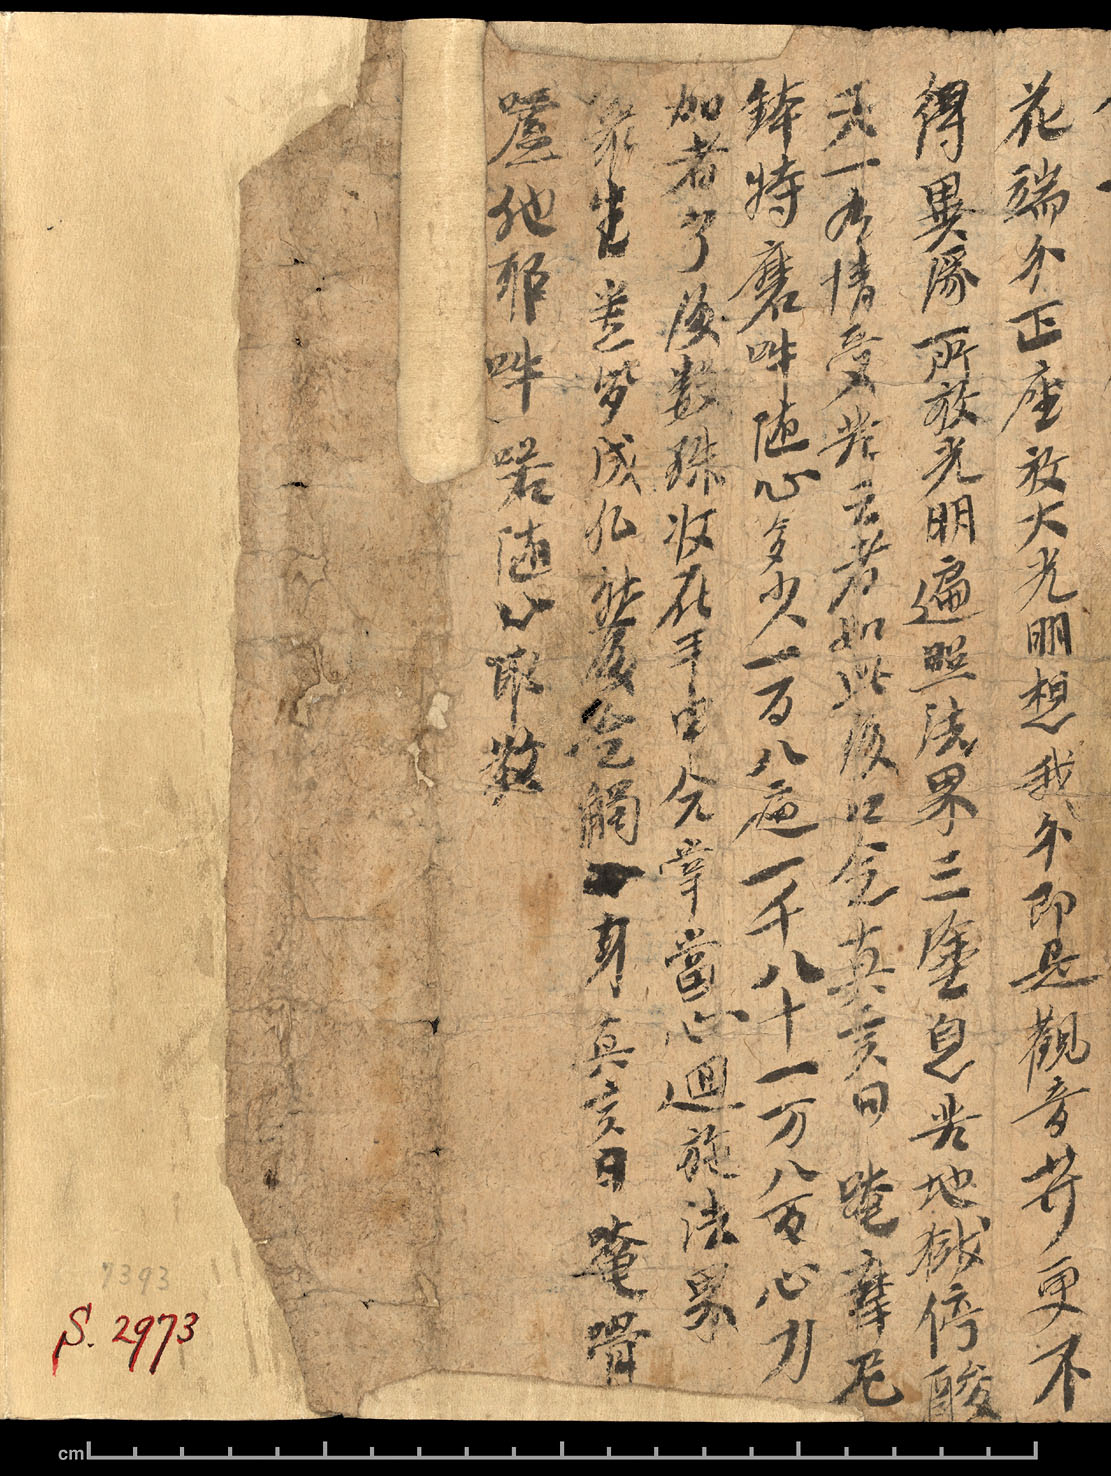 花端尒正座放大光明想我尒即是觀音菩更不
得異緣所放光明遍照法界三塗息苦地獄停酸
天一有情受苦云者如此後口念真言曰 唵麼尼
鉢特磨吽随心多少一百八遍一千八十一万八百心力
加者了後數珠收在手中合掌當心迴施法界
衆生差皆成仏然後念觸身真言曰 唵
蘆地耶吽 若随心取數
7393
S. 2973
cm